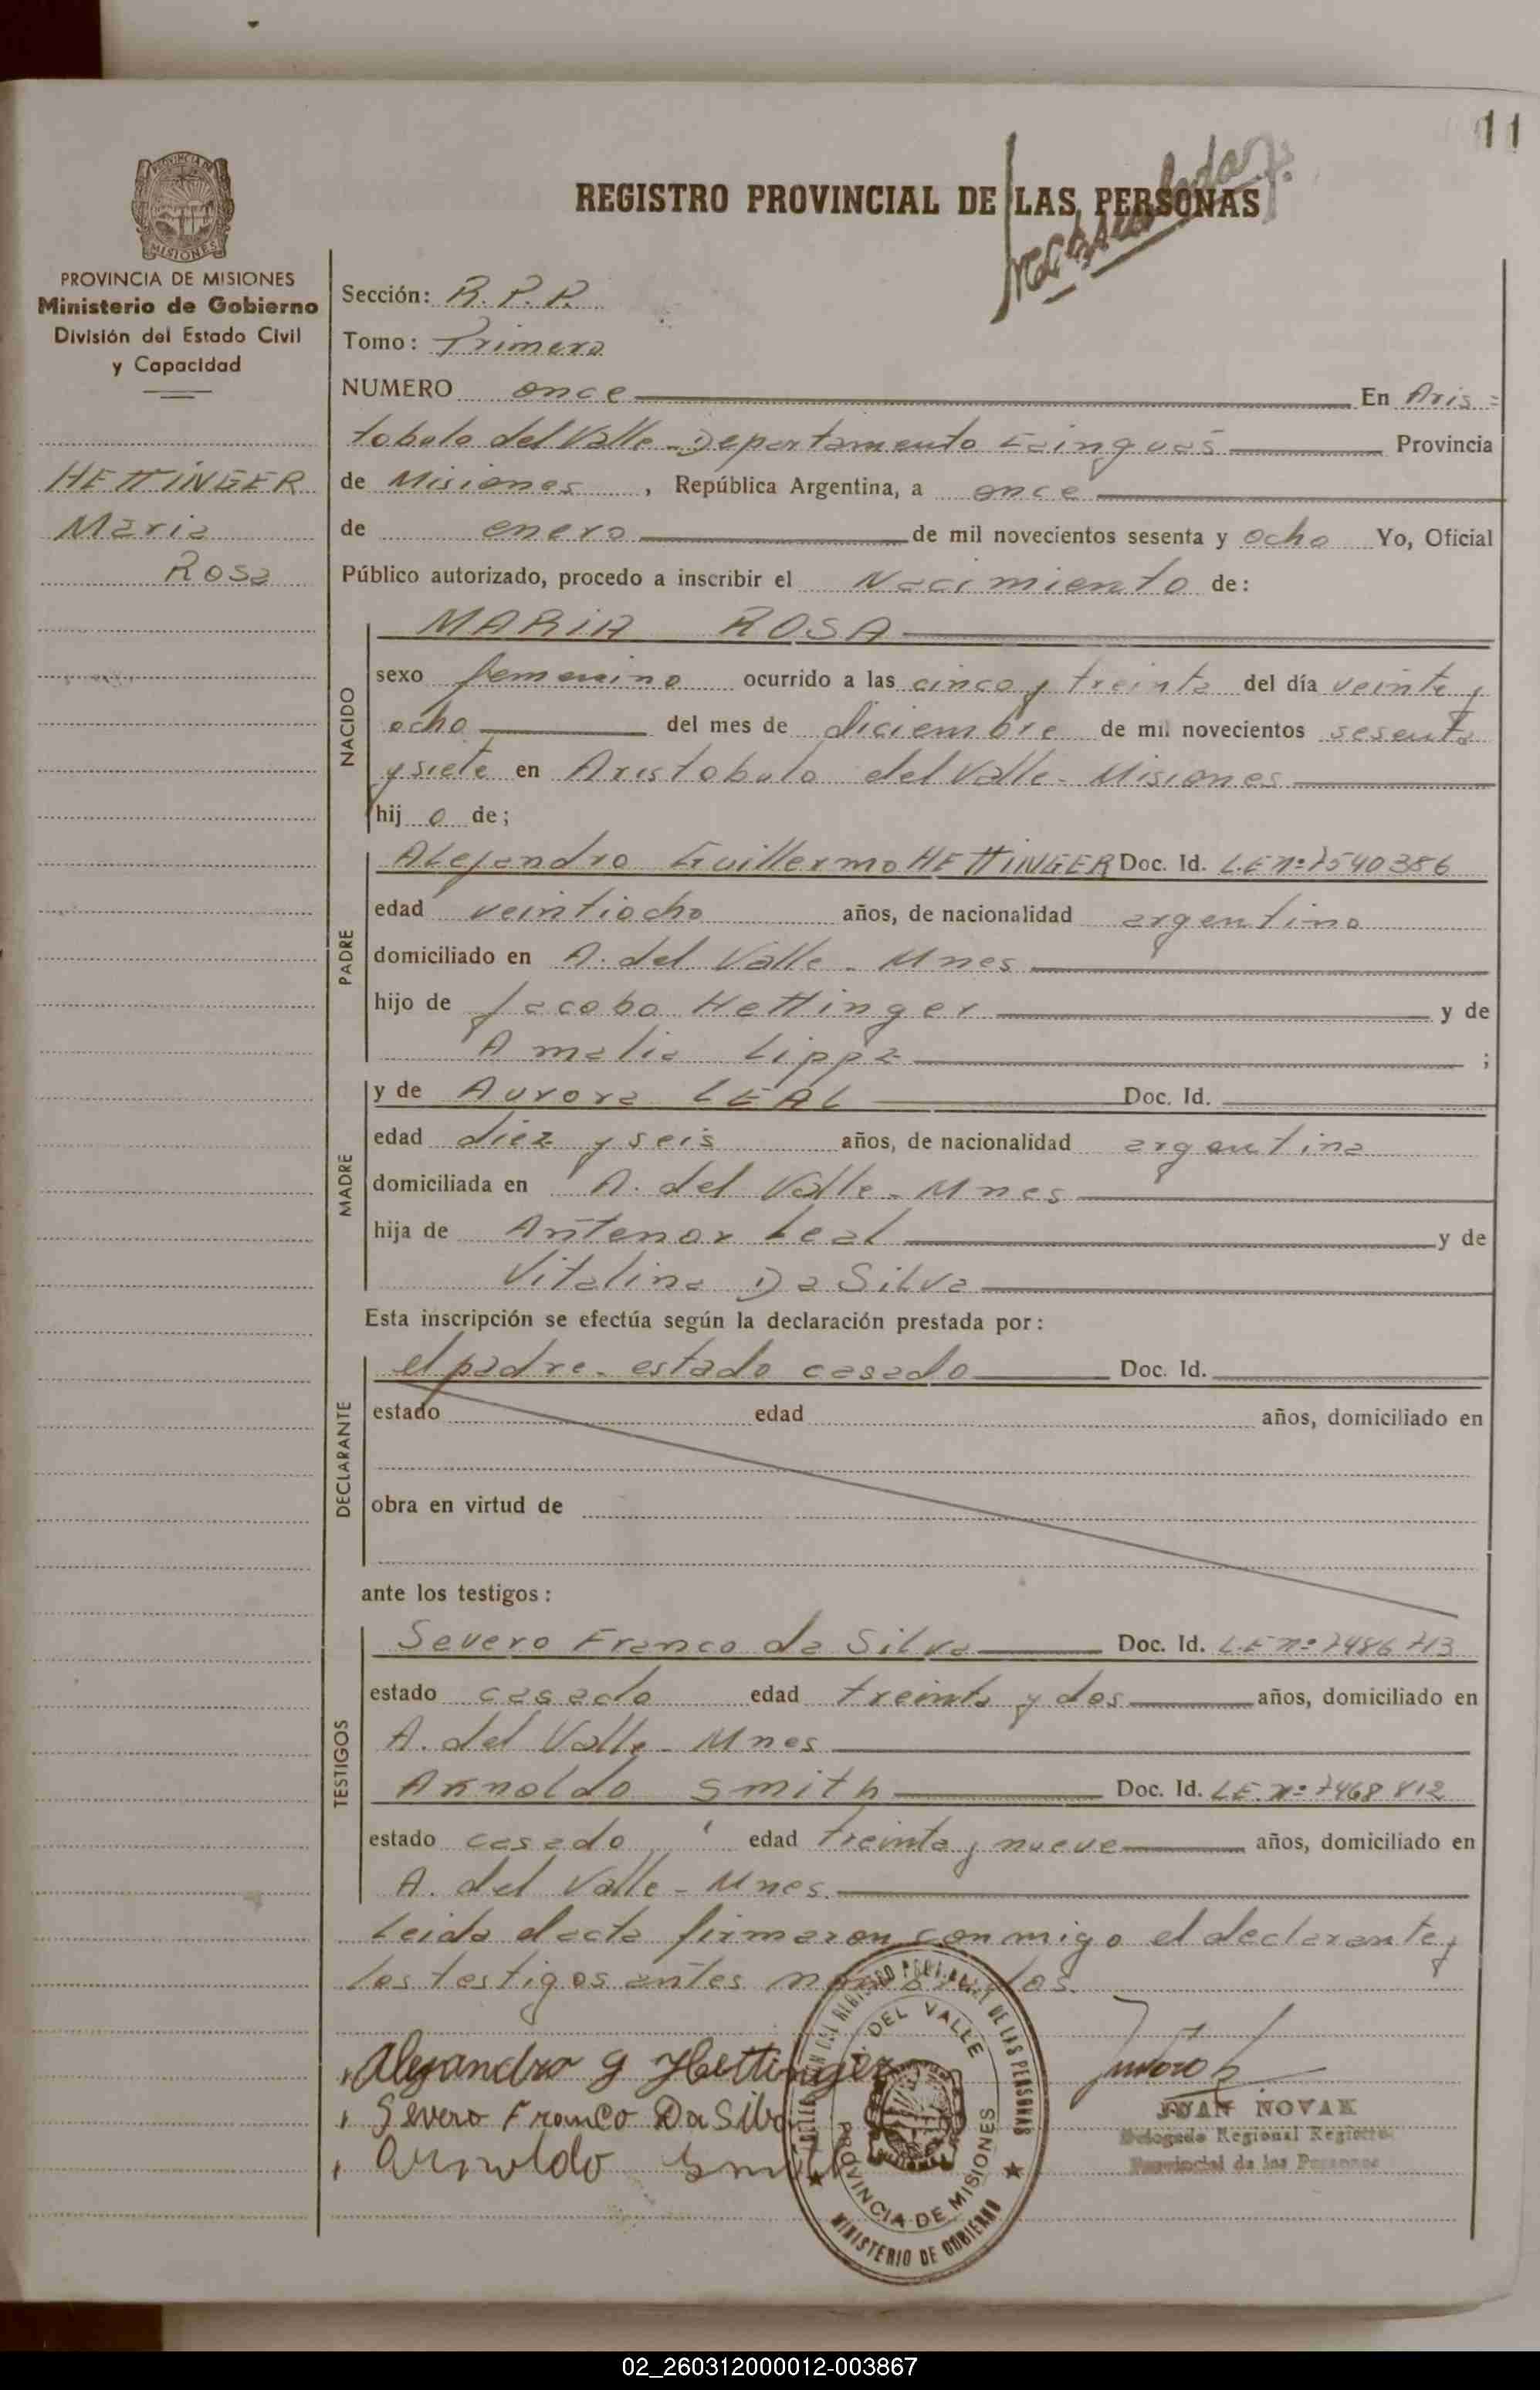 11
REGISTRO PROVINCIAL DE LAS PERSONAS
PROVINCIA DE MISIONES
Ministerio de Gobierno
División del Estado Civil
y Capacidad
HETTINGER
Maria
Rosa
Sección: R. P. P.
Tomo: Primero
NUMERO once En Aris=
tobulo del Valle - Departamento Cainguas Provincia
de Misiones, República Argentina, a once
de enero de mil novecientos sesenta y ocho Yo, Oficial
Público autorizado, procedo a inscribir el Nacimiento de:
NACIDO
MARIA ROSA
sexo femenino ocurrido a las cinco y treinta del día veinte y
ocho del mes de diciembre de mil novecientos sesenta
y siete en Aristobulo del Valle - Misiones
hij o de;
PADRE
Alejandro Guillermo HETTINGER Doc. Id. L.E nº 7540386
edad veintiocho años, de nacionalidad argentino
domiciliado en A. del Valle - Mnes
hijo de Jacobo Hettinger y de
Amalia Lippa ;
MADRE
y de Aurora LEAL Doc. Id.
edad diez y seis años, de nacionalidad argentina
domiciliada en A. del Valle - Mnes
hija de Antenor Leal y de
Vitalina Da Silva
Esta inscripción se efectúa según la declaración prestada por:
DECLARANTE
el padre - estado casado Doc. Id.
estado edad años, domiciliado en
obra en virtud de
ante los testigos:
TESTIGOS
Severo Franco da Silva Doc. Id. L.E nº 7486713
estado casado edad treinta y dos años, domiciliado en
A. del Valle - Mnes
Arnoldo Smith Doc. Id. L.E. nº 7468812
estado casado edad treinta y nueve años, domiciliado en
A. del Valle - Mnes.
Leida el acta firmaron conmigo el declarante y
los testigos antes nombrados.
Alejandro G Hettinger
Severo Franco Da Silva
Arnoldo Smith
DEL REGISTRO PROVINCIAL DE LAS PERSONAS
DEL VALLE
PROVINCIA DE MISIONES
MINISTERIO DE GOBIERNO
JUAN NOVAK
Delegado Regional Registro
Provincial de las Personas
02_260312000012-003867